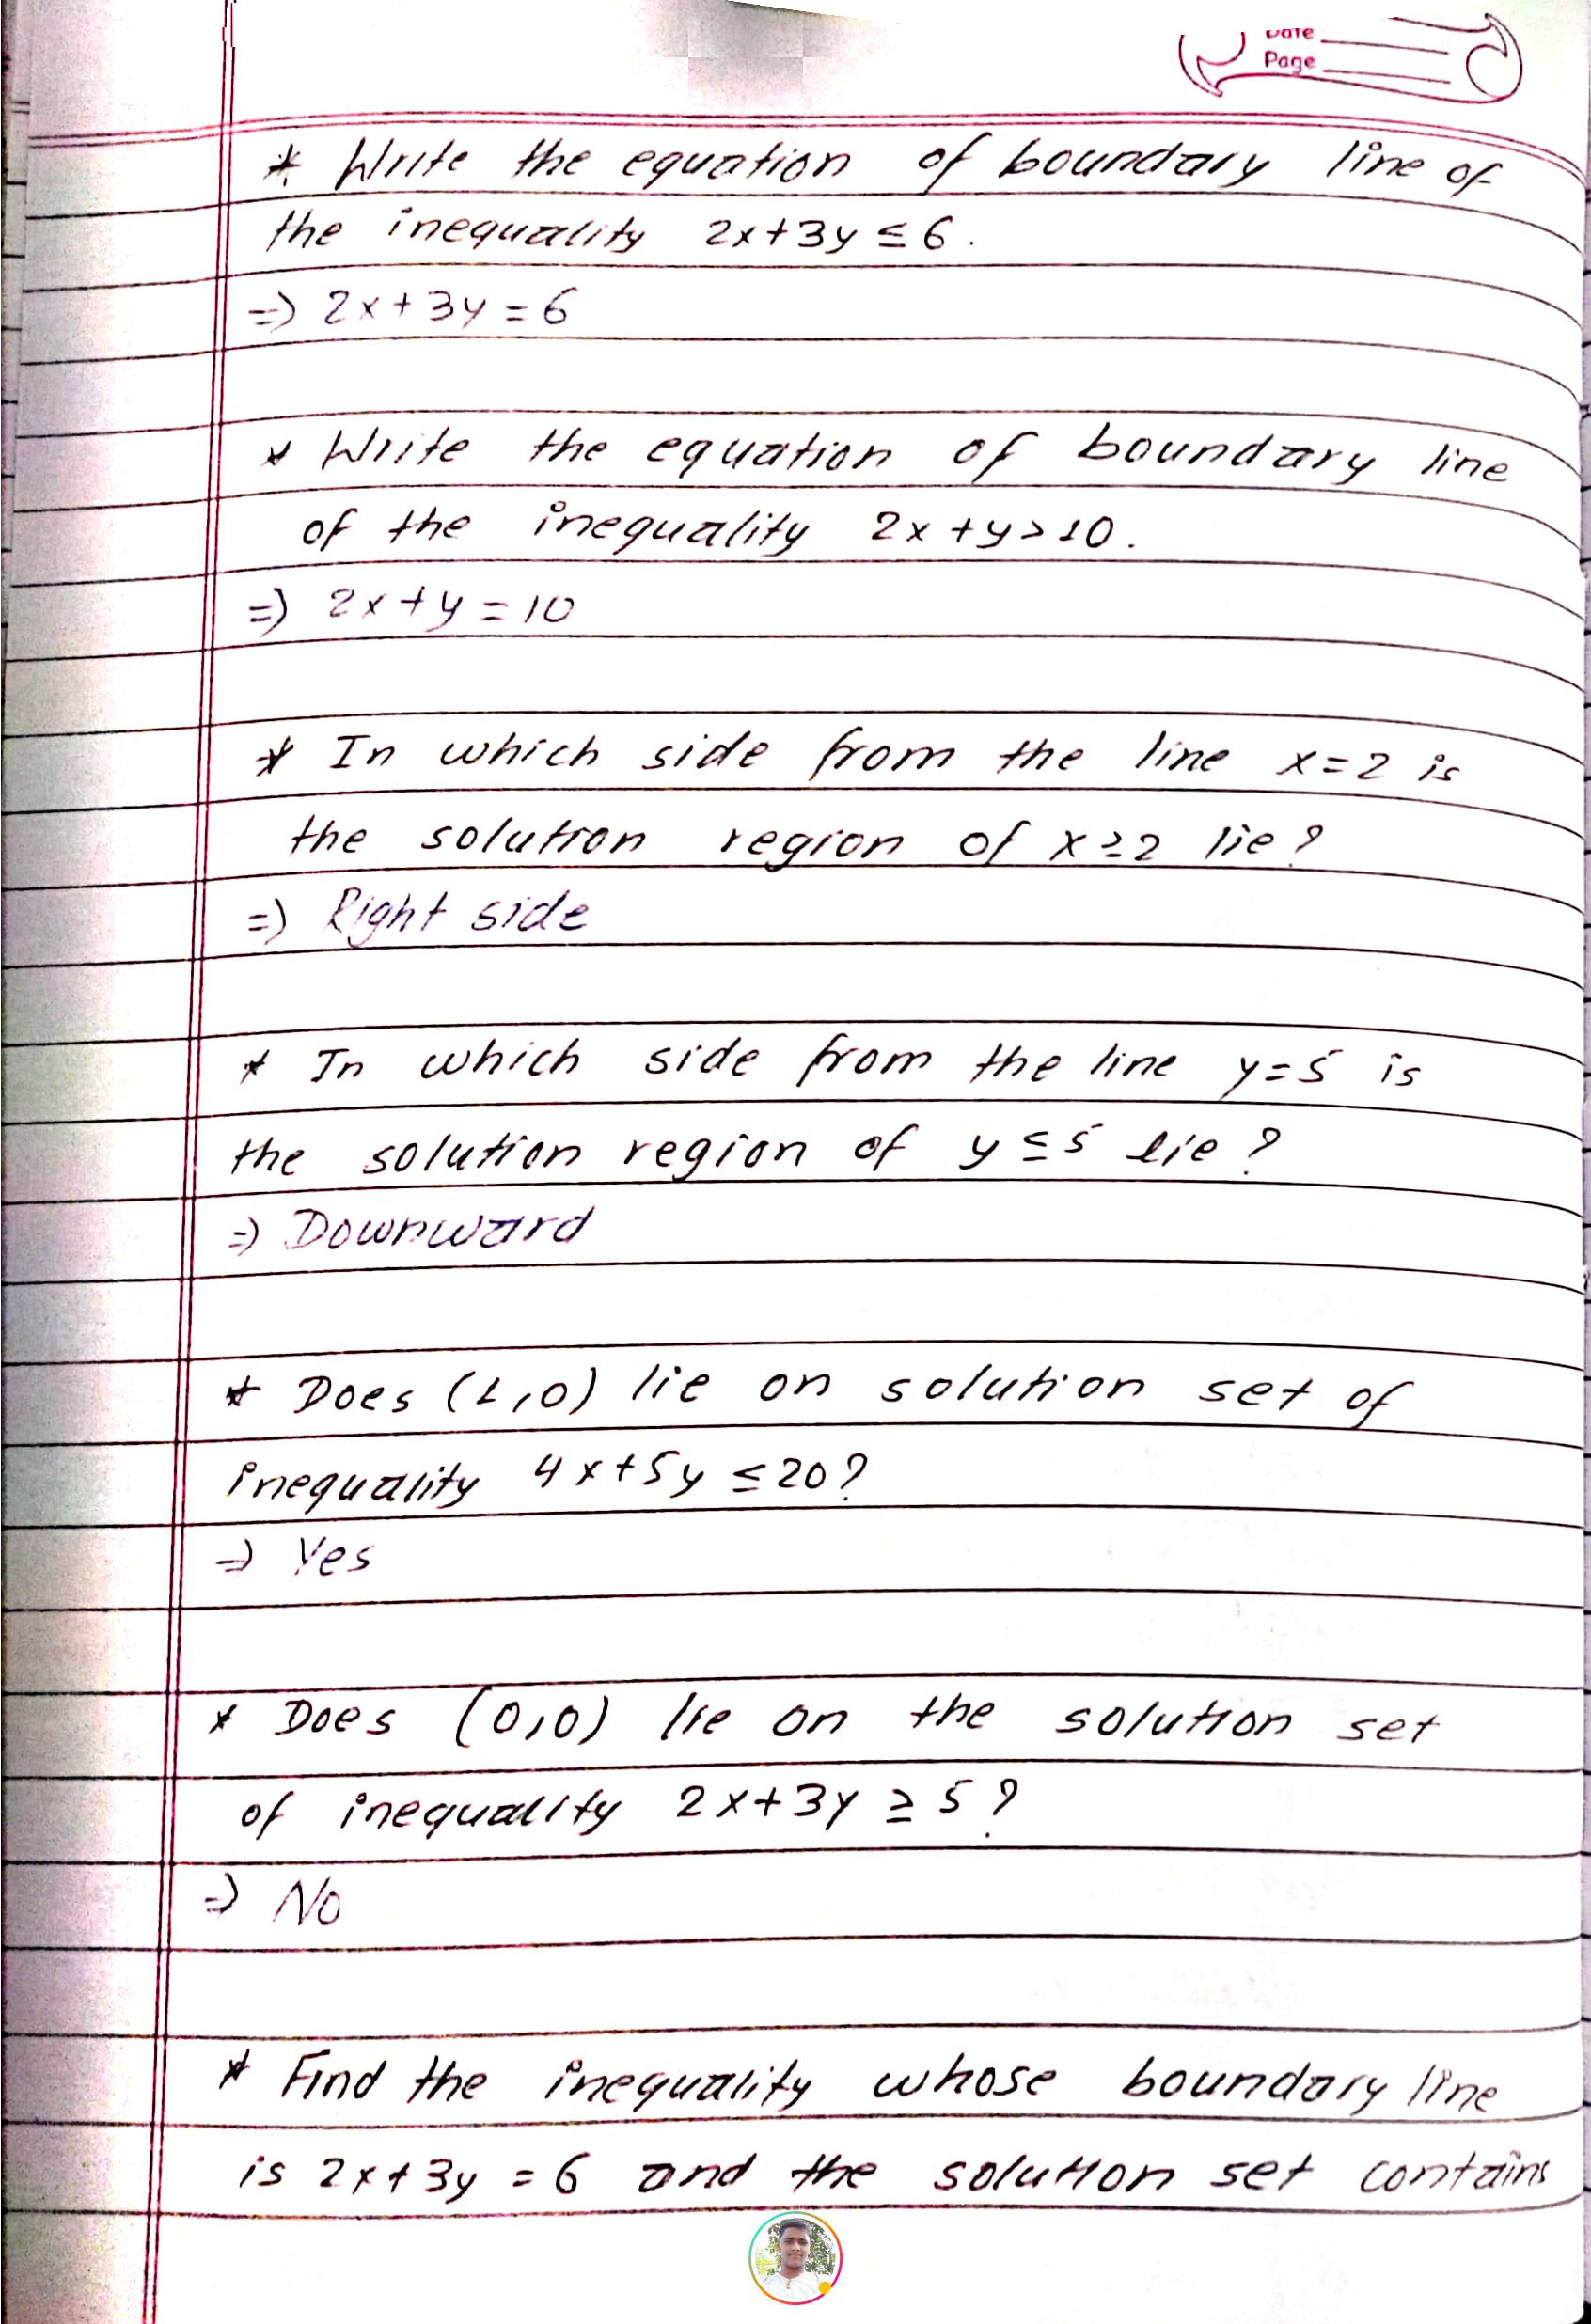 Date
Page
* Write the equation of boundary line of
the inequality 2x+3y ≤ 6.
=) 2x+3y = 6
* Write the equation of boundary line
of the inequality 2x+y>10.
=) 2x+y = 10
* In which side from the line x=2 is
the solution region of x≥2 lie?
=) Right side
* In which side from the line y=5 is
the solution region of y≤5 lie?
=) Downward
* Does (1,0) lie on solution set of
inequality 4x+5y ≤20?
=) Yes
* Does (0,0) lie on the solution set
of inequality 2x+3y ≥ 5?
=) No
* Find the inequality whose boundary line
is 2x+3y = 6 and the solution set contains